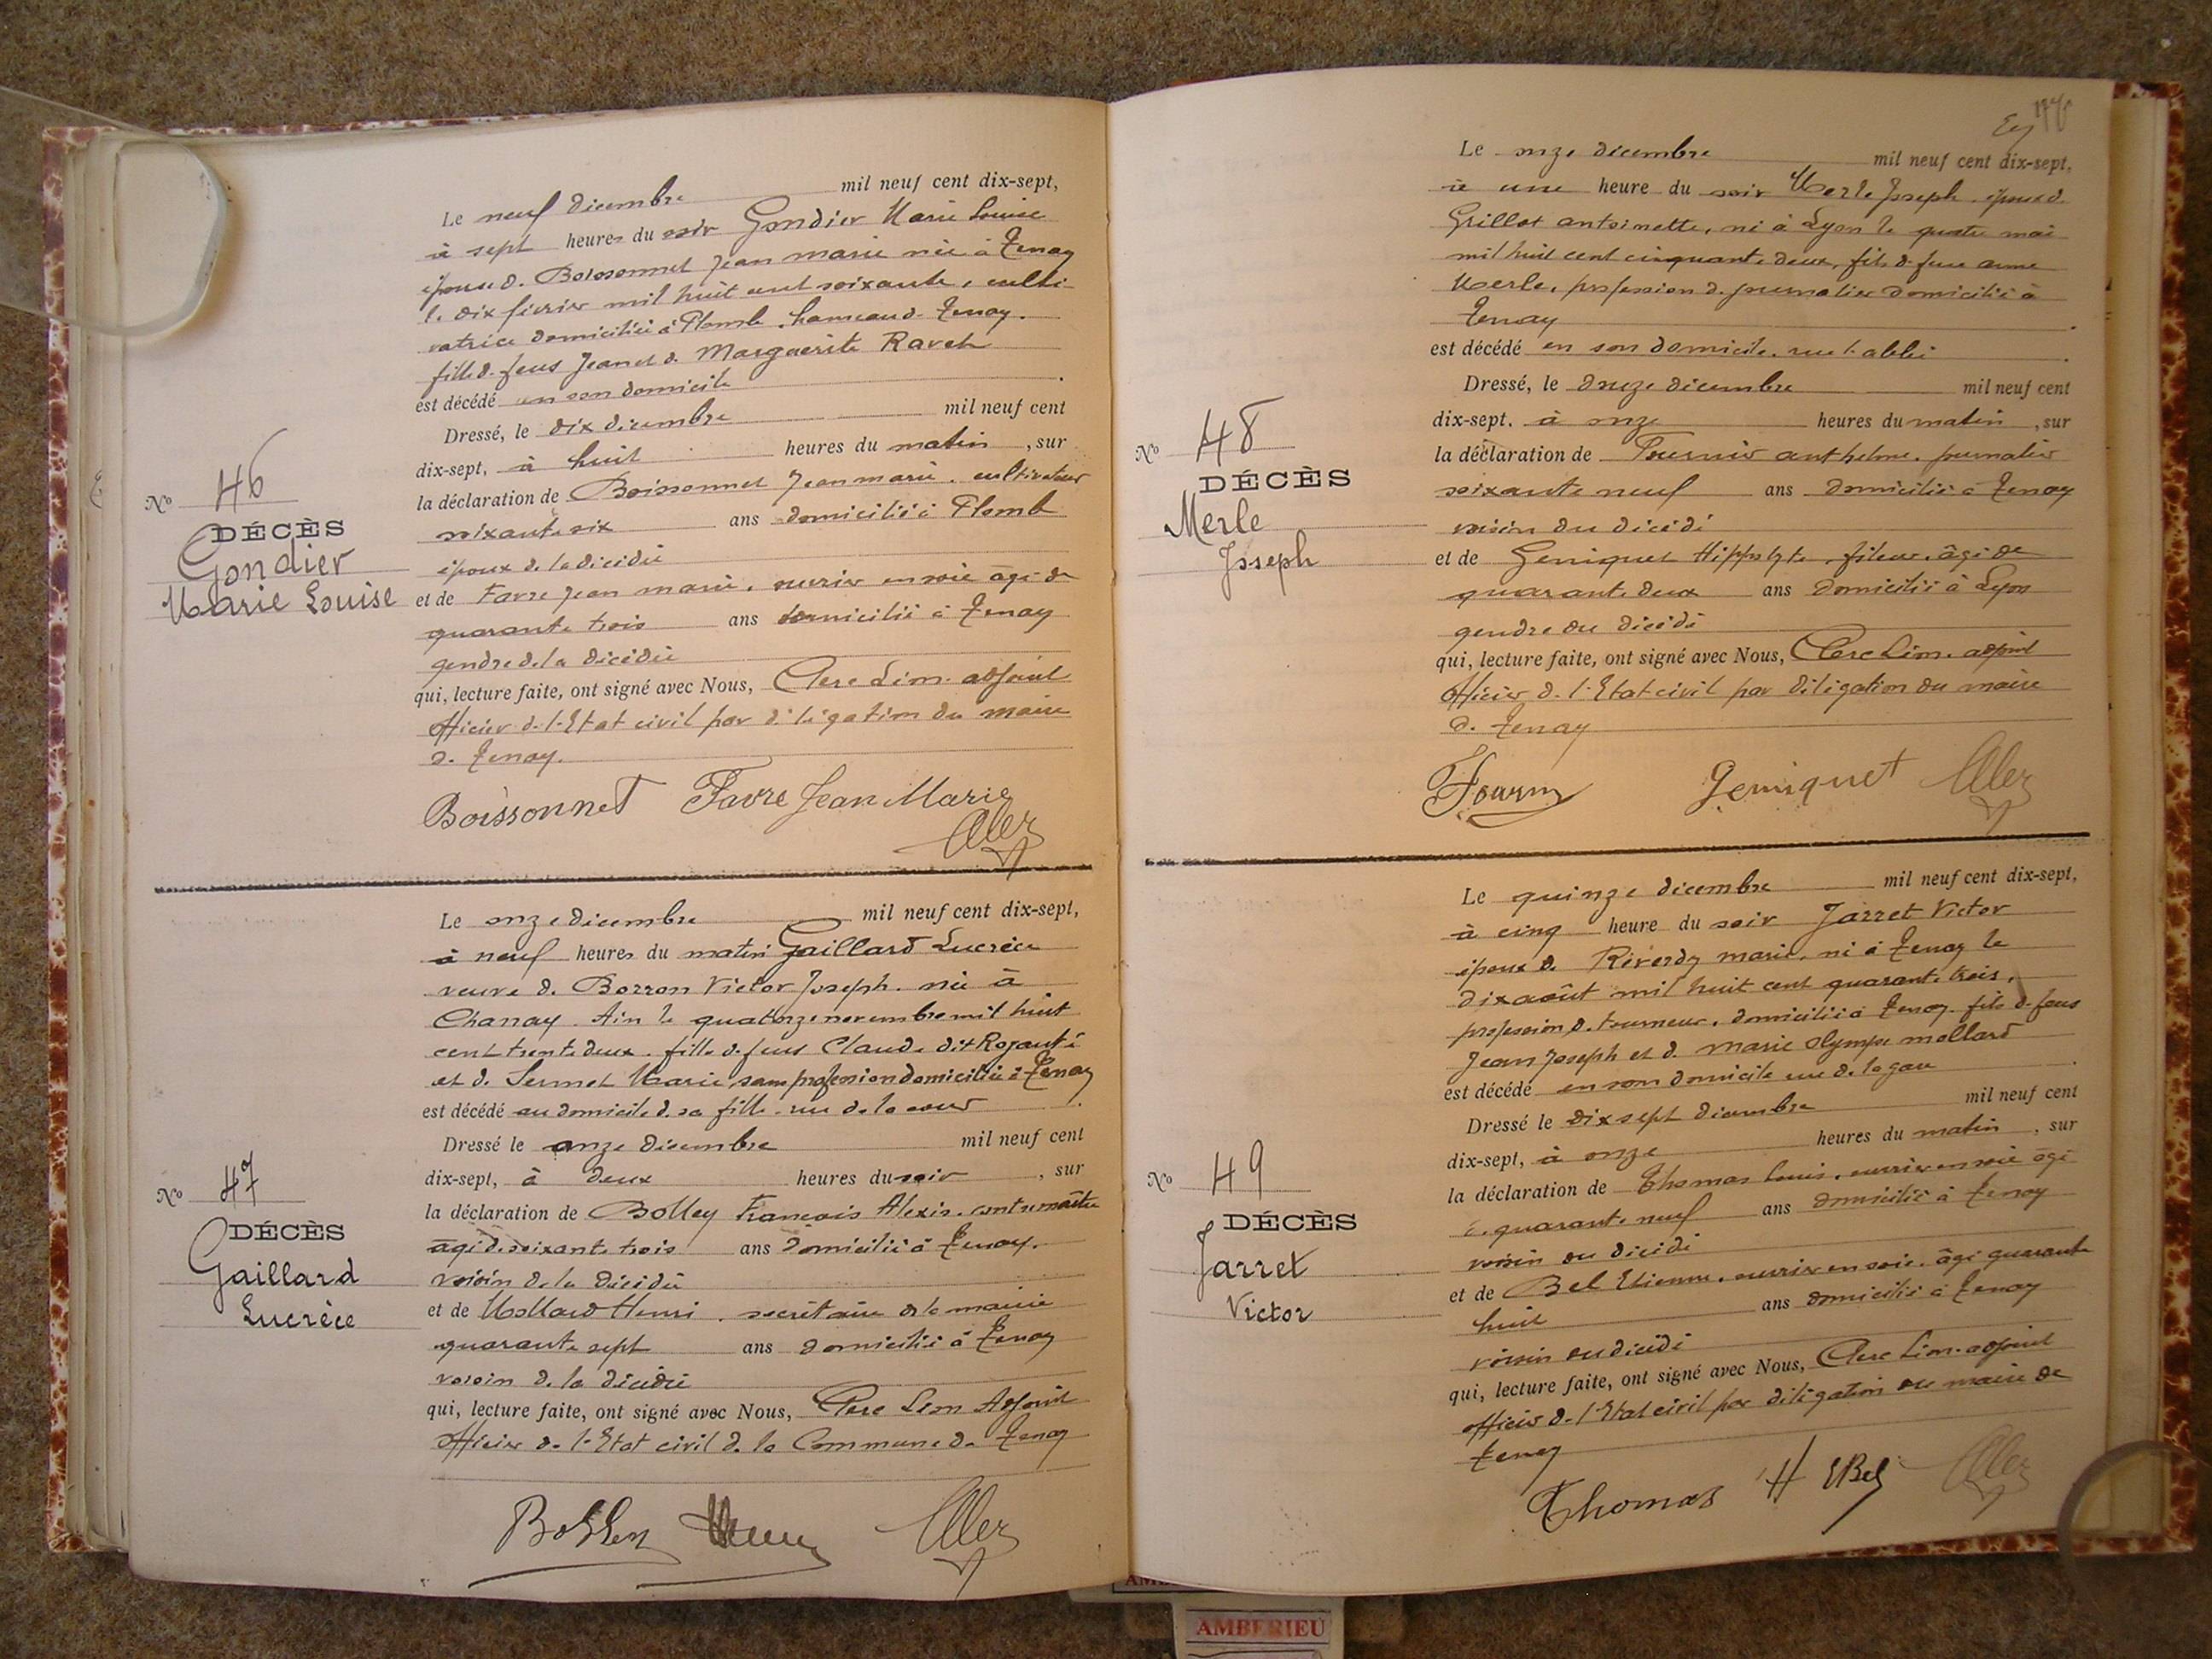 Le neuf décembre mil neuf cent dix-sept,
à sept heures du soir Gondier Marie Louise
épouse de Boissonnet Jean Marie née à Tenay
le dix février mil huit cent soixante, culti-
vatrice domiciliée à Plomb, hameau de Tenay.
fille de feus Jean et de Marguerite Ravet
est décédé en son domicile
Dressé, le dix décembre mil neuf cent
dix-sept, à huit heures du matin, sur
la déclaration de Boissonnet Jean marie, cultivateur
soixante six ans domicilié à Plomb
époux de la décédée
et de Favre Jean marie, ouvrier en soie âgé de
quarante trois ans domicilié à Tenay
gendre de la décédée
qui, lecture faite, ont signé avec Nous, Clerc Lém. adjoint
Officier de l'Etat civil par délégation du maire
de Tenay.
Boissonnet Favre Jean Marie
No 46
DÉCÈS
Gondier
Marie Louise
Le onze décembre mil neuf cent dix-sept,
à neuf heures du matin Gaillard Lucrèce
veuve de Borron Victor Joseph. née à
Chanay Ain le quatorze novembre mil huit
cent trente deux. fille de feus Claude dit
et de Sermet Marie, sans profession domiciliée à Tenay
est décédé au domicile de sa fille rue de la cour
Dressé le onze décembre mil neuf cent
dix-sept, à deux heures du soir, sur
la déclaration de Bolley François Alexis. contremaître
âgé de soixante trois ans domicilié à Tenay.
voisin de la décédée
et de Mollard Henri, secrétaire de la mairie
quarante sept ans domicilié à Tenay
voisin de la décédée
qui, lecture faite, ont signé avec Nous, Clerc Lém Adjoint
Officier de l'Etat civil de la Commune de Tenay
Bolley
No 47
DÉCÈS
Gaillard
Lucrèce
Le onze décembre mil neuf cent dix-sept,
à une heure du soir Merle Joseph, époux de
Grillot antoinette, né à Lyon le quatre mai
mil huit cent cinquante deux, fils de feue anne
Merle, profession de journalier domicilié à
Tenay
est décédé en son domicile, rue
Dressé, le douze décembre mil neuf cent
dix-sept, à onze heures du matin, sur
la déclaration de Fournier anthelme, journalier
soixante neuf ans domicilié à Tenay
voisin du décédé
et de Geniquet Hippolyte fileur, âgé de
quarante deux ans domicilié à Lyon
gendre du décédé
qui, lecture faite, ont signé avec Nous, Clerc Lém. adjoint
Officier de l'Etat civil par délégation du maire
de Tenay
Geniquet
No 48
DÉCÈS
Merle
Joseph
Le quinze décembre mil neuf cent dix-sept,
à cinq heure du soir Jarret Victor
époux de Réverdy marie, né à Tenay le
dix août mil huit cent quarante trois,
profession de tourneur, domicilié à Tenay fils de feus
Jean Joseph et de Marie Olympe mollard
est décédé en son domicile rue de la gare
Dressé le dix sept décembre mil neuf cent
dix-sept, à onze heures du matin, sur
la déclaration de Thomas Louis, ouvrier en soie âgé
de quarante neuf ans domicilié à Tenay
voisin du décédé
et de Bel Etienne, ouvrier en soie, âgé quarante
huit ans domicilié à Tenay
voisin du décédé
qui, lecture faite, ont signé avec Nous, Clerc Lém. adjoint
officier de l'Etat civil par délégation du maire de
Tenay
Thomas H EBel
No 49
DÉCÈS
Jarret
Victor
AMBERIEU